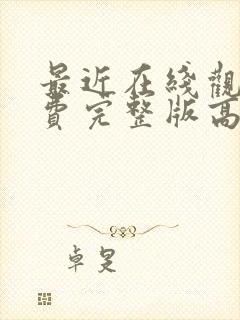 最近在线觀
费完整版高
卓旻